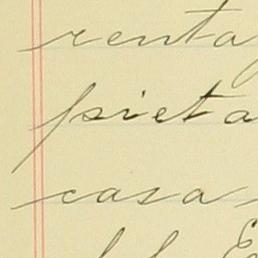 renta
pieta
casa